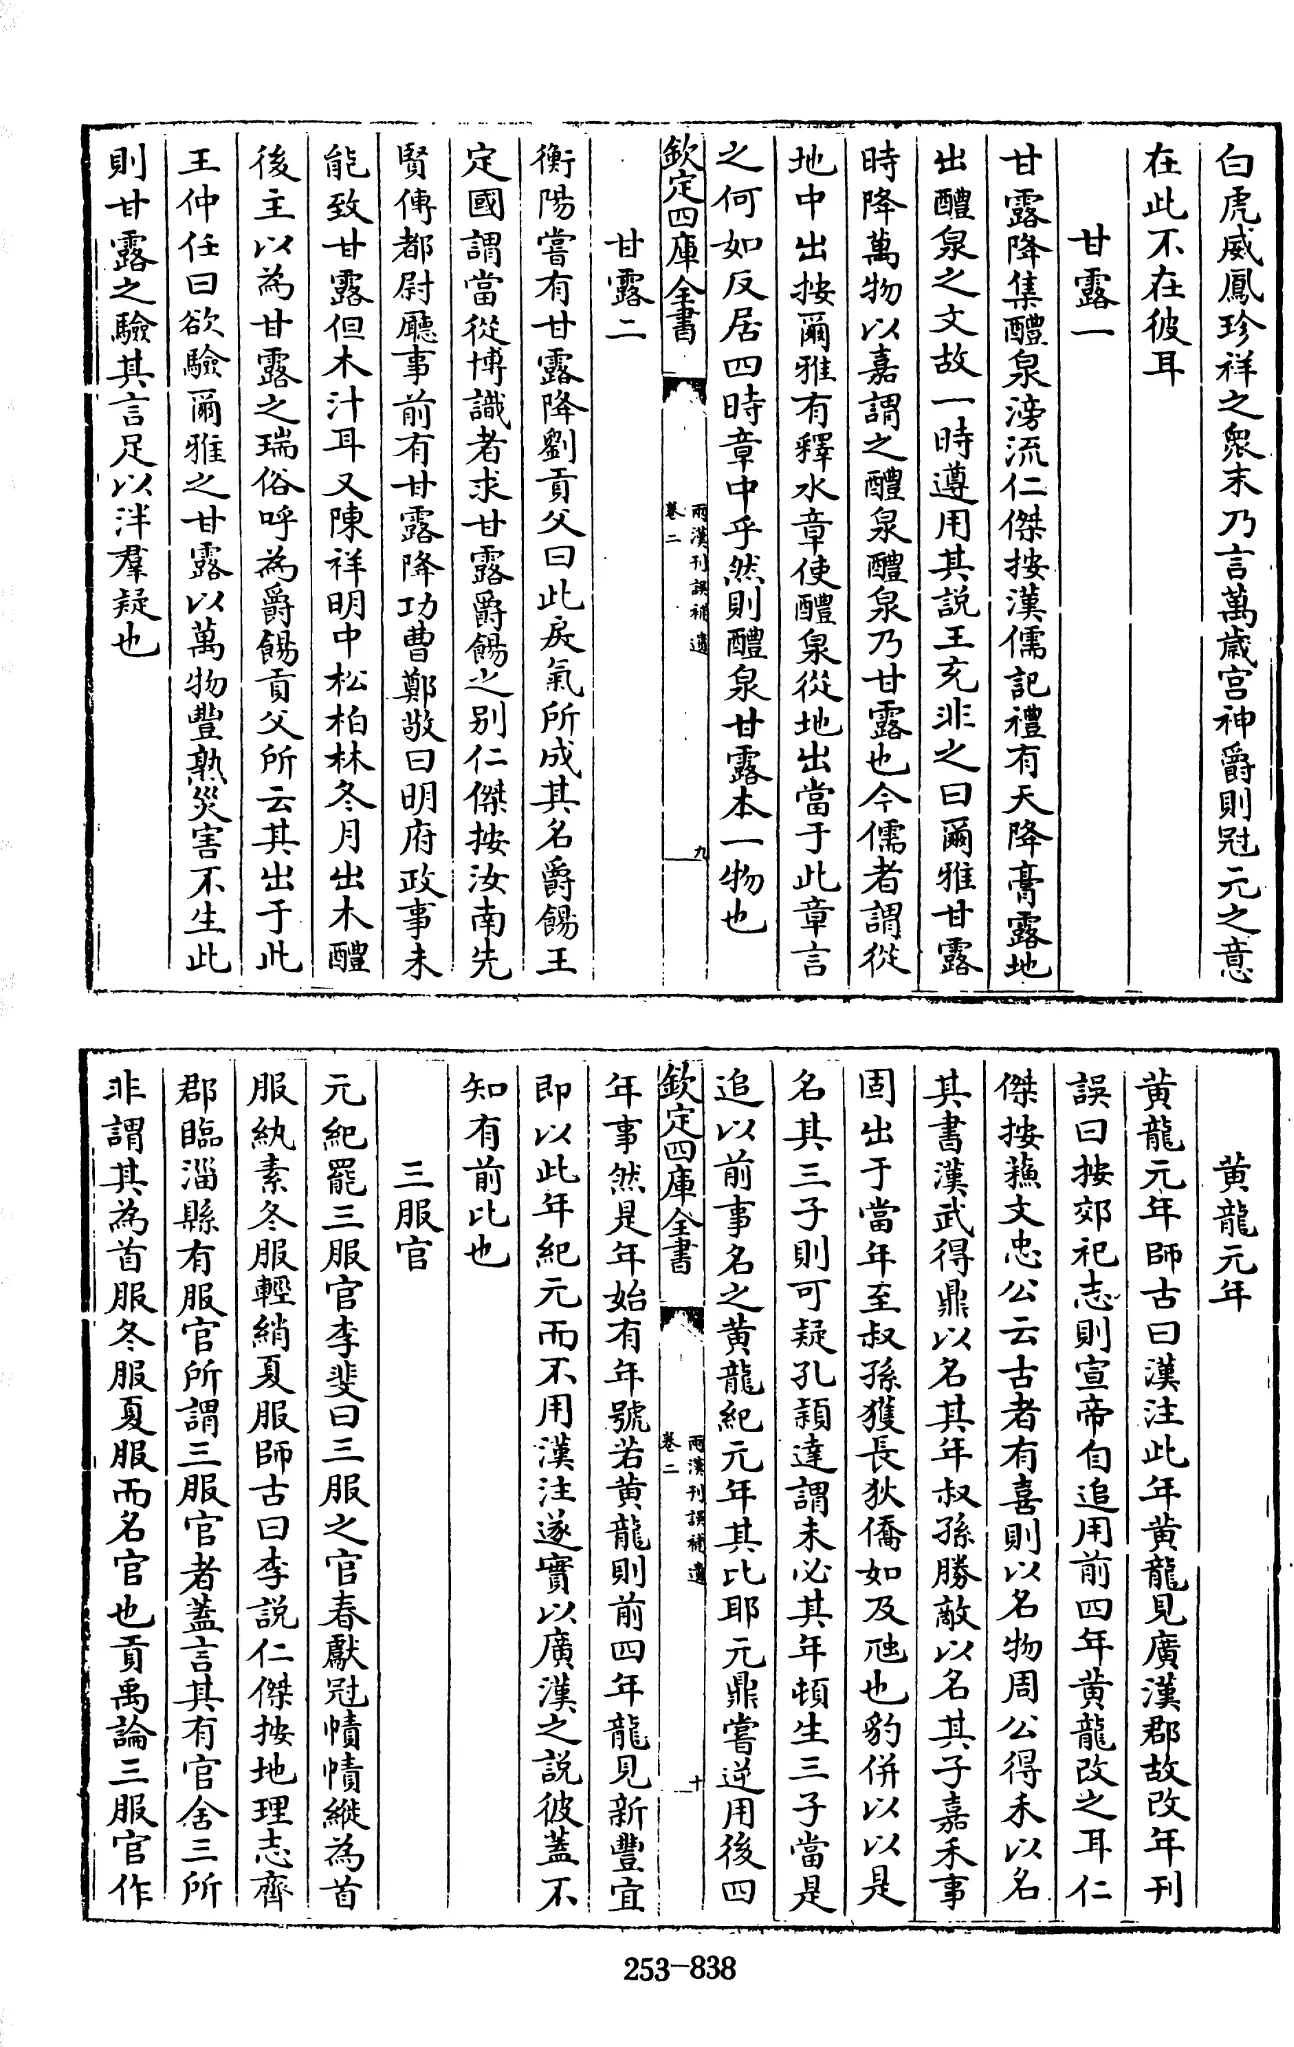 白虎威鳳珍祥之衆末乃言萬歳宫神爵則冠元之意
在此不在彼耳
甘露一
甘露降集醴泉滂流仁傑按漢儒記禮有天降膏露地
出醴泉之文故一時遵用其説王充非之曰爾雅甘露
時降萬物以嘉謂之醴泉醴泉乃甘露也今儒者謂從
地中出按爾雅有釋水章使醴泉從地出當于此章言
之何如反居四時章中乎然則醴泉甘露本一物也
欽定四庫全書
兩漢刋誤補遺
卷二
九
甘露二
衡陽嘗有甘露降劉貢父曰此戾氣所成其名爵餳王
定國謂當從博識者求甘露爵餳之别仁傑按汝南先
賢傳都尉廳事前有甘露降功曹鄭敬曰明府政事未
能致甘露但木汁耳又陳祥明中松柏林冬月出木醴
後主以為甘露之瑞俗呼為爵餳貢父所云其出于此
王仲任曰欲驗爾雅之甘露以萬物豐熟災害不生此
則甘露之驗其言足以泮羣疑也
黄龍元年
黄龍元年師古曰漢注此年黄龍見廣漢郡故改年刋
誤曰按郊祀志則宣帝自追用前四年黄龍改之耳仁
傑按蘓文忠公云古者有喜則以名物周公得禾以名
其書漢武得鼎以名其年叔孫勝敵以名其子嘉禾事
固出于當年至叔孫獲長狄僑如及虺也豹併以以是
名其三子則可疑孔頴達謂未必其年頓生三子當是
追以前事名之黄龍紀元年其比耶元鼎嘗逆用後四
欽定四庫全書
兩漢刋誤補遺
卷二
十
年事然是年始有年號若黄龍則前四年龍見新豐宜
即以此年紀元而不用漢注遂實以廣漢之説彼蓋不
知有前比也
三服官
元紀罷三服官李斐曰三服之官春獻冠幘幘縰為首
服紈素冬服輕綃夏服師古曰李説仁傑按地理志齊
郡臨淄縣有服官所謂三服官者蓋言其有官舍三所
非謂其為首服冬服夏服而名官也貢禹論三服官作
253-838